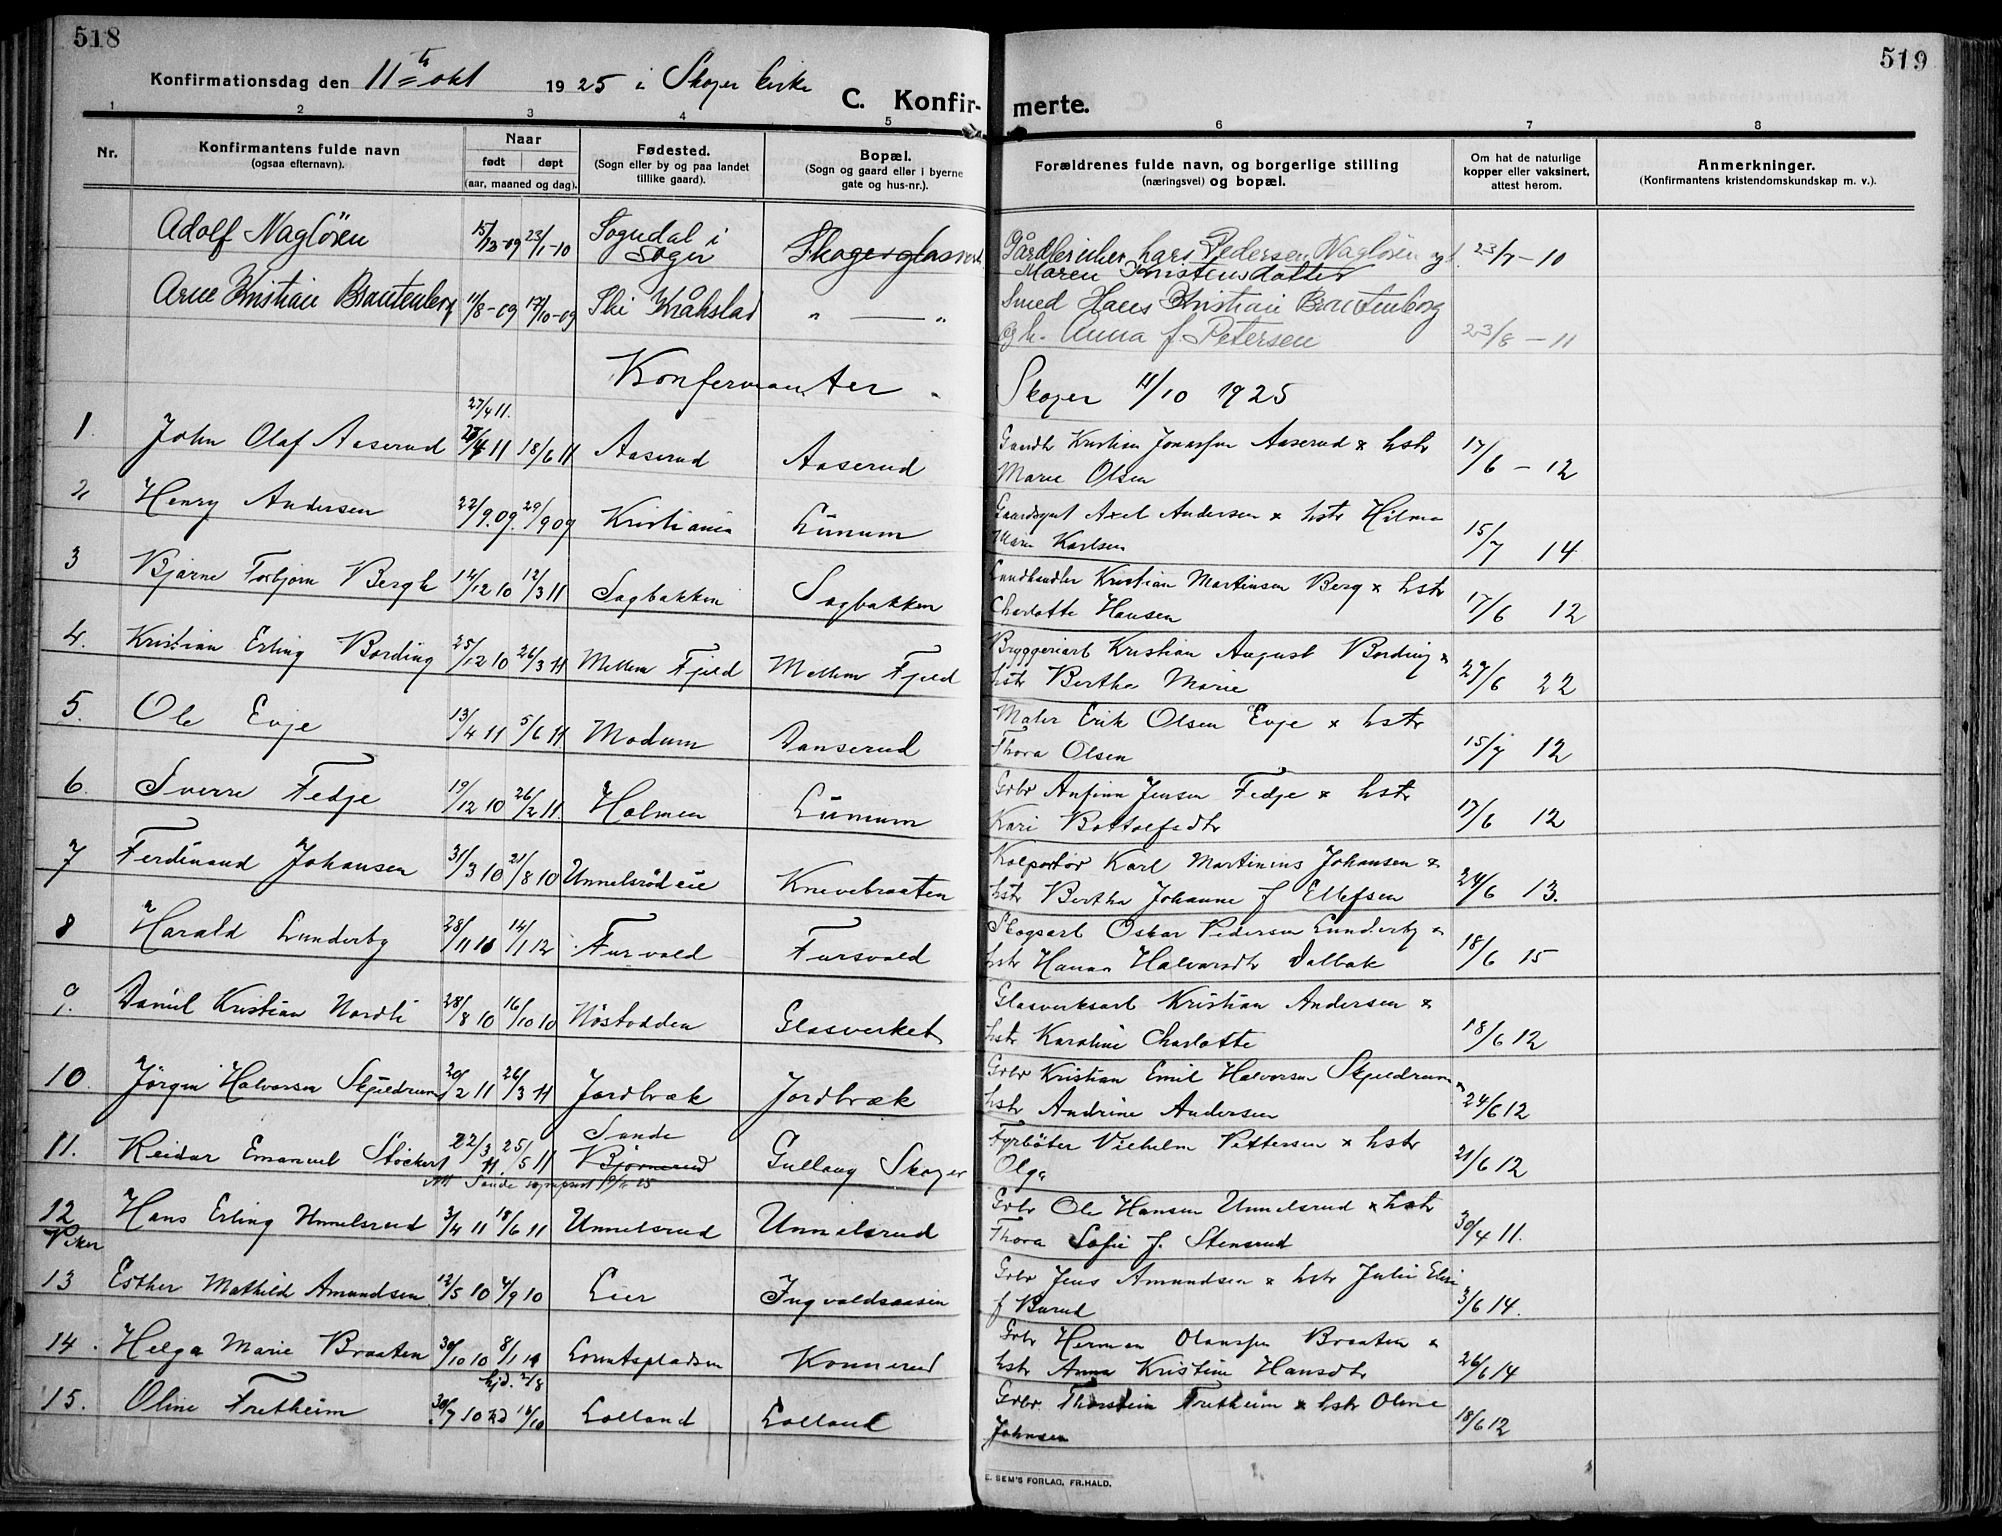 518
519
Konfirmationsdag den 11te okt 1925 i Skoger kirke
C. Konfir-merte.
1 2 3 4 5 6 7 8
Nr.
Konfirmantens fulde navn
(ogsaa efternavn).
Naar
født døpt
(aar, maaned og dag).
Fødested.
(Sogn eller by og paa landet
tillike gaard).
Bopæl.
(Sogn og gaard eller i byerne
gate og hus-nr.).
Forældrenes fulde navn, og borgerlige stilling
(næringsvei) og bopæl.
Om hat de naturlige
kopper eller vaksinert,
attest herom.
Anmerkninger.
(Konfirmantens kristendomskundskap m. v.).
Adolf Nagløren 15/12-09 23/1-10 Sogndal i Skogerglassverk Gårdbruker Lars Pedersen Nagløren og 23/7-10
Sogn Maren Kristensdatter
Arne Kristian Brautenborg 11/8-09 17/10-09 Ski Kråkstad " — " Smed Hans Kristian Brautenborg
og h. Anna f. Petersen 23/8-11
Konfermanter. Skoger 11/10 1925
27/4 11.
1. John Olaf Aaserud 28/4 11 18/6 11 Aaserud Aaserud Gaardbr Kristian Jonassen Aaserud & hstr 17/6-12
Marie Olsen
2 Henry Andersen 22/9.09. 29/9 09 Kristiania Lunum Axel Andersen & hstr Hilma
Marie Karlsen 15/7 14
3 Bjarne Torbjørn Bergh 14/12 10 12/3 11 Sagbakken Sagbakken Landhandler Kristian Martinsen Berg & hstr
Charlotte Hansen 17/6 12
4. Kristian Erling Bording 25/12 10 26/3 11 Mellem Fjeld Mellem Fjeld Bryggeriarb Kristian August Bording &
hstr Bertha Marie 27/6 22
5. Ole Evje 13/4 11 5/6 11 Modum Danserud Maler Erik Olsen Evje & hstr
Thora Olsen 15/7 12
6. Sverre Fedje 19/12 10 26/2 11. Holmen Lunum Grbr Anfinn Jensen Fedje & hstr
Kari Bottolfsdtr 17/6 12
7 Ferdinand Johansen 31/3 10 21/8 10 Unnelsrød eie Knivebraaten Kolportør Karl Martinius Johansen &
hstr Bertha Johanne f Ellefsen 24/6 13.
8 Harald Lunderby 28/11 10 14/1 12 Fursvold Fursvold Skogsarb Oskar Pedersen Lunderby &
hstr Hanna Halvorsdtr Dalbak 18/6 15
9. Daniel Kristian Nordli 28/8 10 16/10 10 Nøstodden Glasverket Glasverksarb Kristian Andersen &
hstr Karoline Charlotte 18/6 12
10. Jørgen Halvorsen Skjeldrum 20/2 11 26/3 11 Jordbræk Jordbræk Grbr Kristian Emil Halvorsen Skjeldrum &
hstr Andrine Andersen 24/6 12
11. Reidar Emanuel Støckert 22/3 11. 25/5 11 Sande Bjørnerud Gullaug Skoger Fyrbøter Vilhelm Pettersen & hstr
Olga 21/6 12
Att Sande sogneprest
12 Hans Erling Unnelsrud 3/4 11 18/6 11 Unnelsrud Unnelsrud Grbr Ole Hansen Unnelsrud & hstr
Piker Thora Sofie f. Stensrud 30/4 11.
13 Esther Mathilde Amundsen 12/5 10 4/9 10 Lier Ingvaldsaasen Grbr Jens Amundsen & hstr Julie Elise
f Burud 3/6 14.
14. Helga Marie Braaten 30/10 10 8/1 11 Lorentspladsen Konnerud Grbr Herman Olaussen Braaten &
hstr Anna Kristine Hansdtr 26/6 14
hjd. 2/8
15. Oline Fretheim 30/7 10 16/10 Lolland Lolland Grbr Thorstein Fretheim & hstr Oline
Johnsen 18/6 12
E. SEM'S FORLAG, FR.HALD.